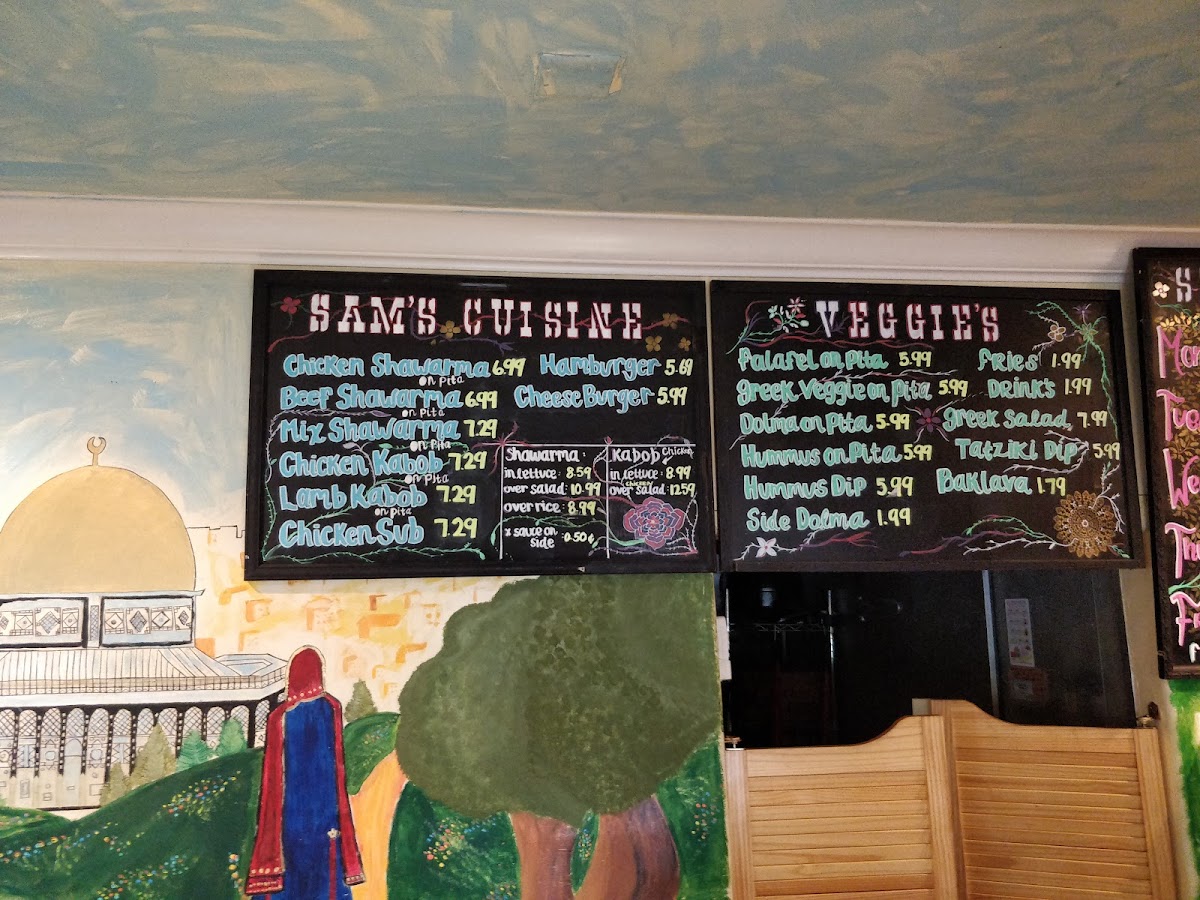 SAM'S CUISINE
Chicken Shawarma 6.99
on Pita
Beef Shawarma 6.99
on Pita
Mix Shawarma 7.29
on Pita
Chicken Kabob 7.29
on Pita
Lamb Kabob 7.29
on pita
Chicken Sub 7.29
Hamburger 5.69
Cheese Burger 5.99
Shawarma:
in lettuce: 8.59
over salad: 10.99
over rice: 8.99
x sauce on :0.50¢
side
Kabob Chicken
in lettuce: 8.99
chicken
over salad: 12.59
VEGGIE'S
Falafel on Pita 5.99
greek Veggie on Pita 5.99
Dolma on Pita 5.99
Hummus on Pita 5.99
Hummus Dip 5.99
Side Dolma 1.99
fries 1.99
Drink's 1.99
Greek salad 7.99
Tatziki Dip 5.99
Baklava 1.79
S